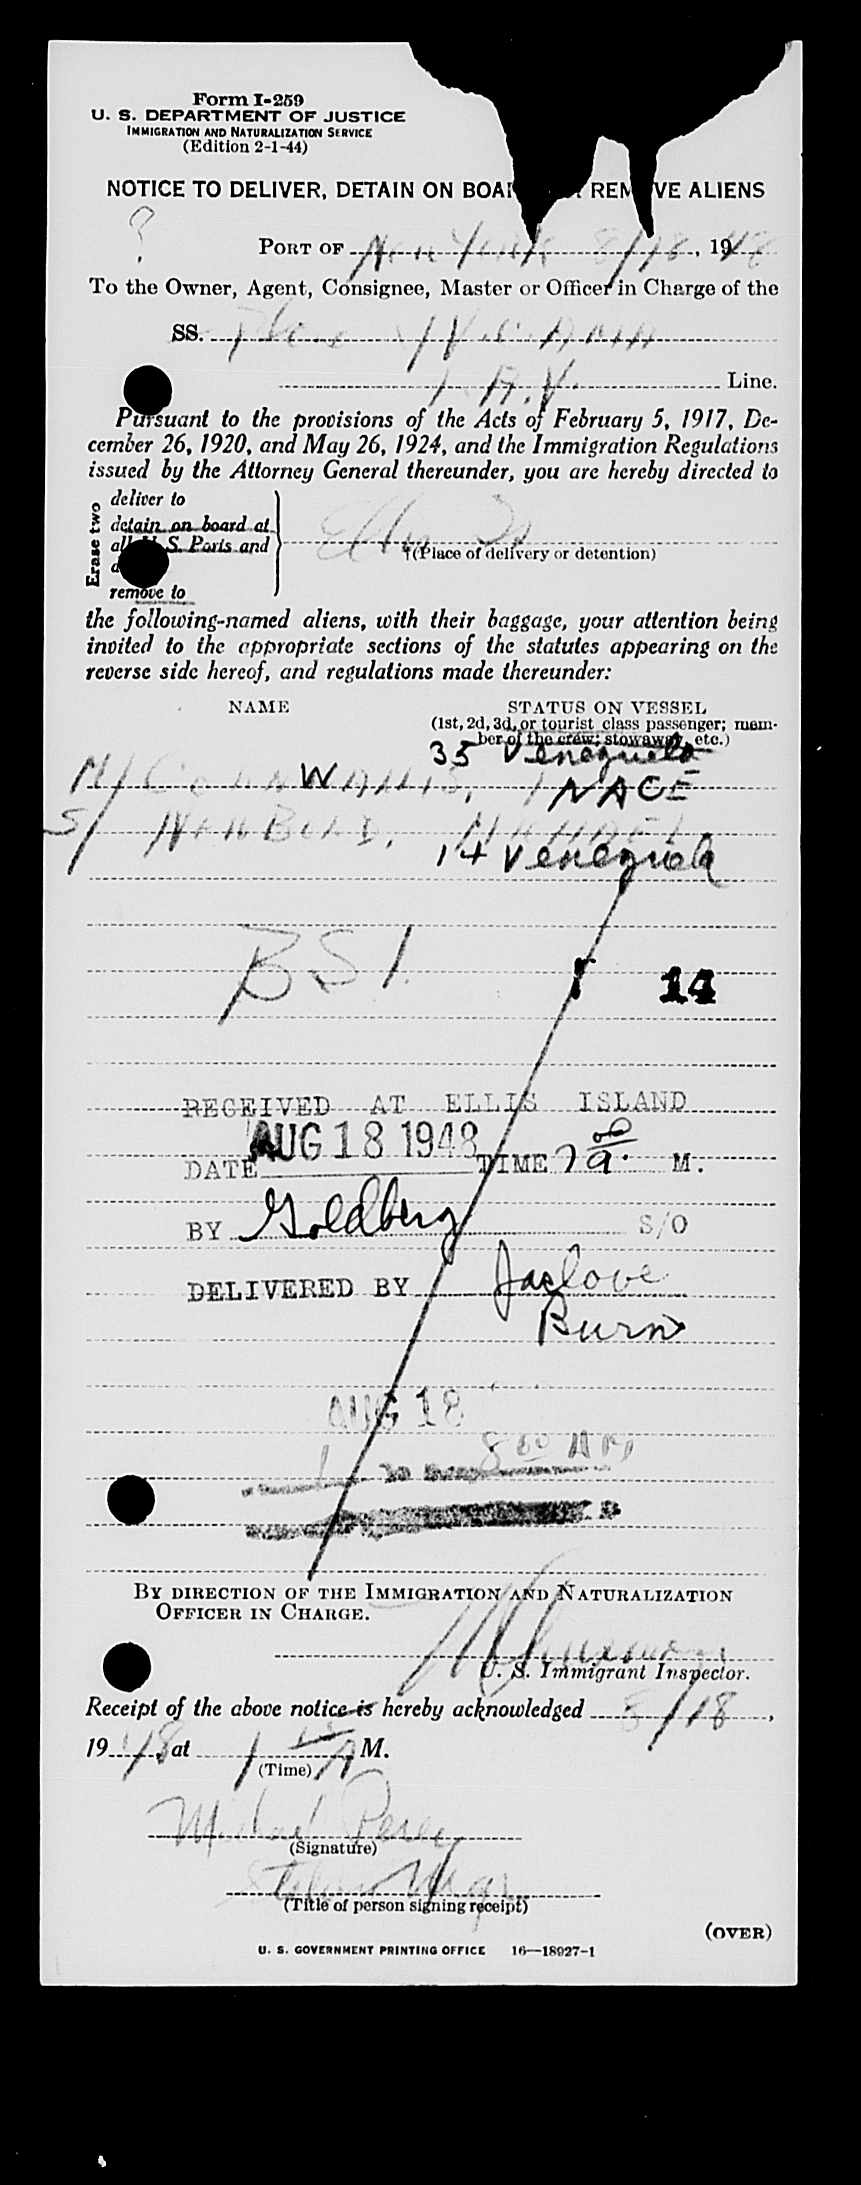 Form I-259
U. S. DEPARTMENT OF JUSTICE
IMMIGRATION AND NATURALIZATION SERVICE
(Edition 2-1-44)
NOTICE TO DELIVER, DETAIN ON BOARD REMOVE ALIENS
?
PORT OF New York 8/18, 1948
To the Owner, Agent, Consignee, Master or Officer in Charge of the
SS. Plane
L.A.V. Line.
Pursuant to the provisions of the Acts of February 5, 1917, De-
cember 26, 1920, and May 26, 1924, and the Immigration Regulations
issued by the Attorney General thereunder, you are hereby directed to
Erase two
deliver to
detain on board at
all U.S. Ports and
remove to
Ellis Is
(Place of delivery or detention)
the following-named aliens, with their baggage, your attention being
invited to the appropriate sections of the statutes appearing on the
reverse side hereof, and regulations made thereunder:
NAME STATUS ON VESSEL
(1st, 2d, 3d, or tourist class passenger; mem-
ber of the crew; stowaway, etc.)
35 Venezuela
M/ CORNWALLIS, INACE
S/
14 Venezuela
BSI
14
RECEIVED AT ELLIS ISLAND
DATE AUG 18 1948 TIME 7 00 a. M.
BY Goldberg S/O
DELIVERED BY Jaslove
Burns
AUG 18
8 00 AM
BY DIRECTION OF THE IMMIGRATION AND NATURALIZATION
OFFICER IN CHARGE.
U. S. Immigrant Inspector.
Receipt of the above notice is hereby acknowledged 8/18,
1948 at 1 A M.
(Time)
Michael Perey
(Signature)
(Title of person signing receipt)
(OVER)
U. S. GOVERNMENT PRINTING OFFICE 16—18927-1